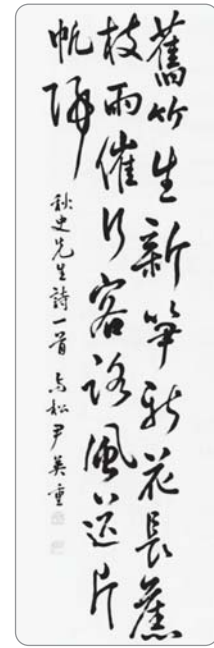 舊竹生新笋新花長舊
枝雨催行客路風送片
帆歸
秋史先生詩一首 松尹英重